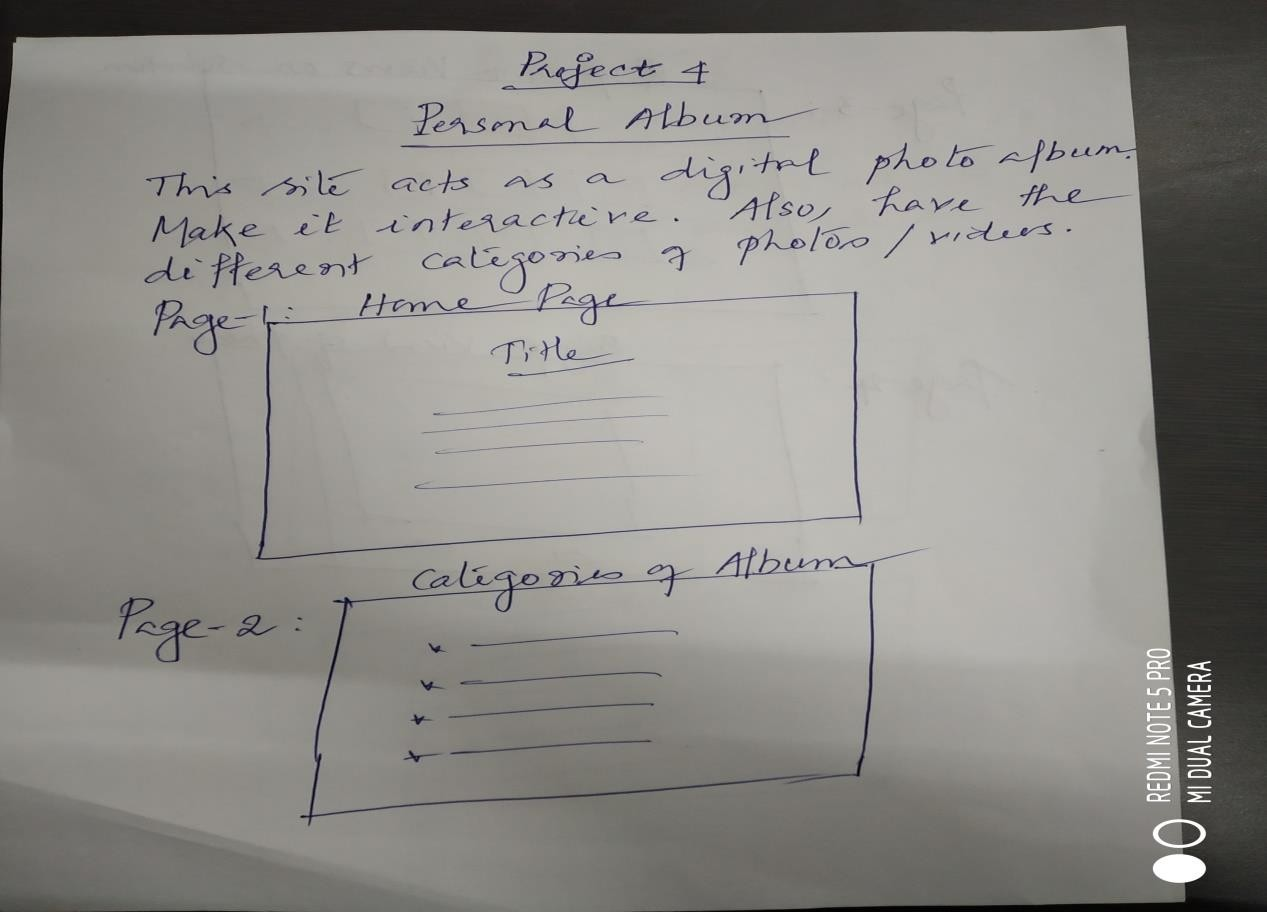 Project 4
Personal Album
This site acts as a digital photo album.
Make it interactive. Also, have the
different categories of photos / videos.
Page-1: Home Page
Title
Categories of Album
Page-2:
REDMI NOTE 5 PRO
MI DUAL CAMERA